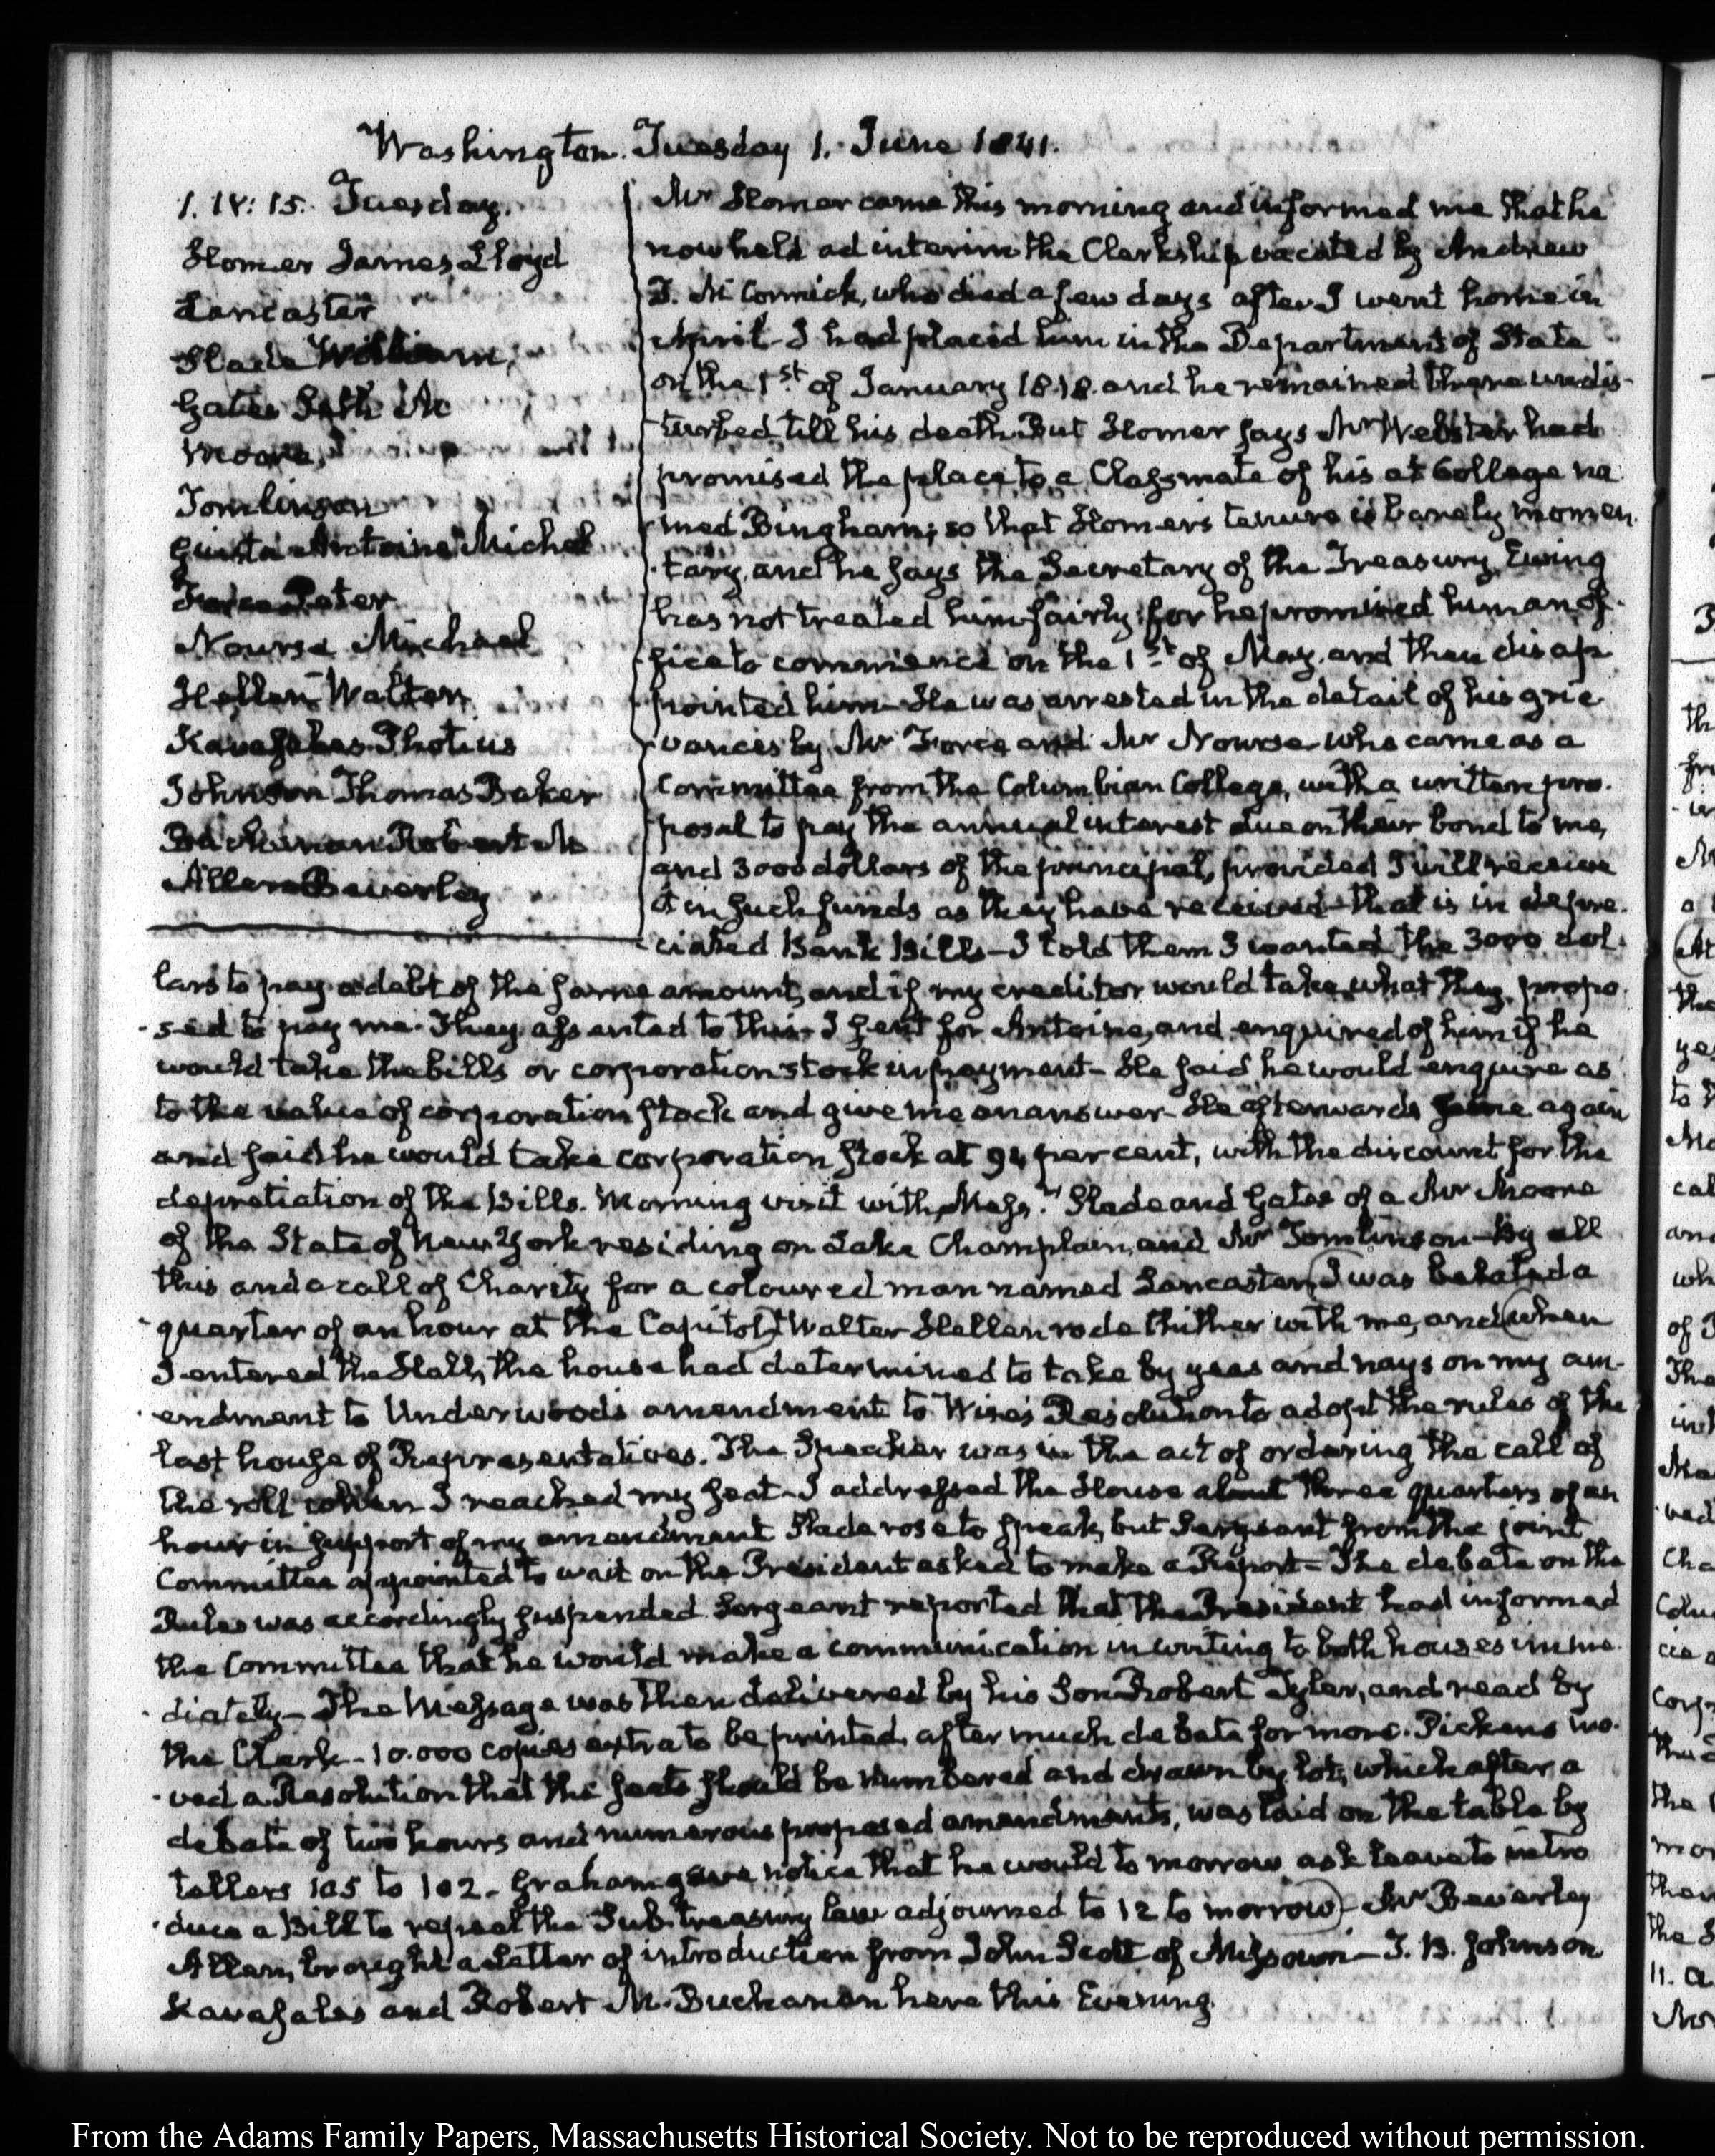 Washington. Tuesday 1. June 1841.
1. IV: 15. Tuesday.
Homer James Lloyd
Lancaster
Slade William,
Gates Seth M
Moore,
Tomlinson
Giusta Antoine Michel
Force Peter
Nourse Michael
Hellen Walter
Kavasales Photius
Johnson Thomas Baker
Buchanan Robert M
Allen Beverley
Mr Homer came this morning and informed me that he
now held ad interim the Clerkship vacated by Andrew
T. McCormick, who died a few days after I went home in
April- I had placed him in the Department of State
on the 1st of January 1818. and he remained there undis-
turbed till his death. But Homer says Mr Webster had
promised the place to a Classmate of his at College na
med Bingham; so that Homer's tenure is barely momen-
tary, and he says the Secretary of the Treasury, Ewing
has not treated him fairly; for he promised him an of-
fice to commence on the 1st of May, and then disap
pointed him- He was arrested in the detail of his grie
vances by Mr Force and Mr Nourse who came as a
Committee from the Columbian College, with a written pro-
posal to pay the annual interest due on their bond to me,
and 3000 dollars of the principal, provided I will receive
it in such funds as they have received- that is in depre-
ciated Bank Bills- I told them I wanted the 3000 dol-
lars to pay a debt of the same amount, and if my creditor would take what they propo-
sed to pay me. They assented to this- I sent for Antoine, and enquired of him if he
would take the bills or corporation stock in payment- He said he would enquire as
to the value of corporation stock and give me an answer- He afterwards came again
and said he would take corporation stock at 94 per cent, with the discount for the
depretiation of the Bills. Morning visit with Messrs Slade and Gates of a Mr Moore
of the State of New-York residing on Lake Champlain, and Mr Tomlinson- By all
this and a call of Charity for a coloured man named Lancaster, (I was belated a
quarter of an hour at the Capitol) Walter Hellen rode thither with me, and (when
I entered the Hall, the house had determined to take by yeas and nays on my am-
endment to Underwood's amendment to Wise's Resolution to adopt the rules of the
last house of Representatives. The Speaker was in the act of ordering the call of
the roll when I reached my seat- I addressed the House about three quarters of an
hour in support of my amendment Slade rose to speak, but Sergeant from the joint
Committee appointed to wait on the President asked to make a Report- The debate on the
Rules was accordingly suspended Sergeant reported that the President had informed
the Committee that he would make a communication in writing to both houses imme-
diately- The Message was then delivered by his Son Robert Tyler, and read by
the Clerk- 10.000 copies extra to be printed, after much debate for more. Pickens mo-
ved a Resolution that the seats should be numbered and drawn by lot, which after a
debate of two hours and numerous proposed amendments, was laid on the table by
tellers 105 to 102- Graham gave notice that he would to morrow ask leave to intro
duce a Bill to repeal the Sub-treasury law adjourned to 12 to morrow)- Mr Beverley
Allen, brought a Letter of introduction from John Scott of Missouri- T. B. Johnson
Kavasales and Robert M. Buchanan here this Evening.
From the Adams Family Papers, Massachusetts Historical Society. Not to be reproduced without permission.